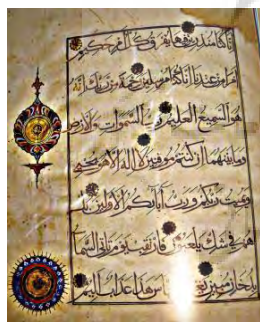 إنا كنا منذرين فيها يفرق كل أمر حكيم
أمرا من عندنا إنا كنا مرسلين رحمة من ربك إنه
هو السميع العليم رب السموات والأرض
وما بينهما إن كنتم موقنين لا إله إلا هو يحيي
ويميت ربكم ورب آبائكم الأولين بل
هم في شك يلعبون فارتقب يوم تأتي السماء
بدخان مبين يغشى الناس هذا عذاب أليم